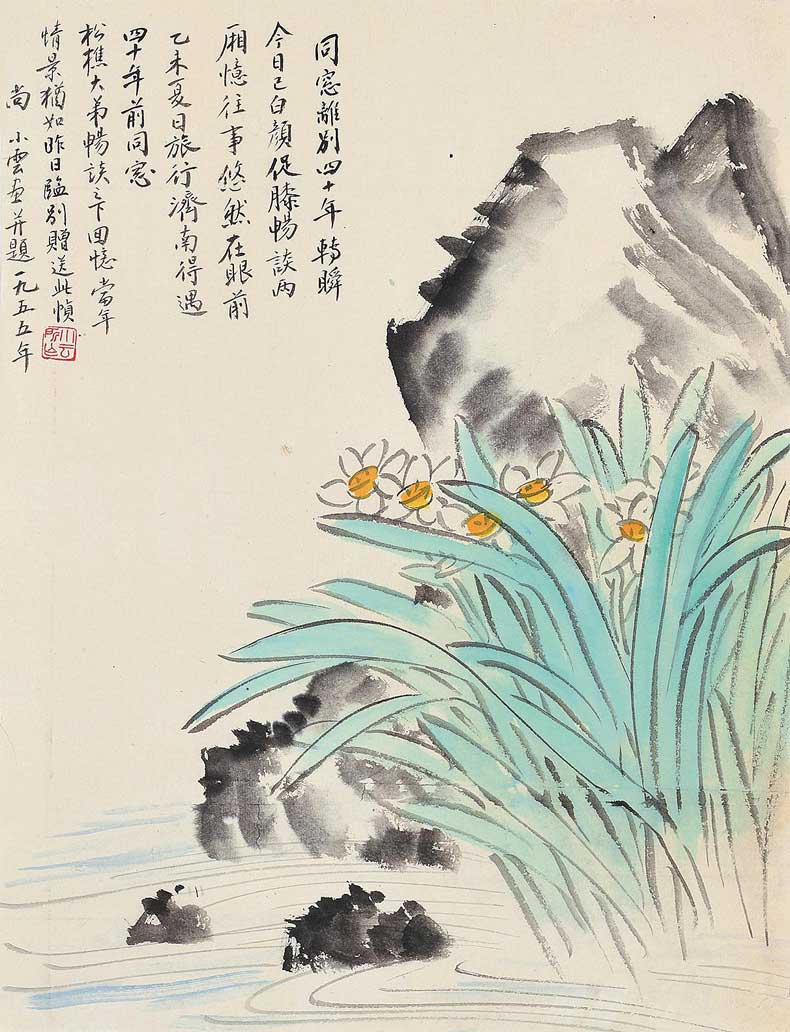 同窓離别四十年轉瞬
今日已白顔促膝暢談両
廂憶往事悠然在眼前
乙未夏日旅行濟南得遇
四十年前同窓
松樵大弟暢談之下回憶當年
情景猶如昨日臨别贈送此幀
尚小雲画并題一九五五年
小云所作